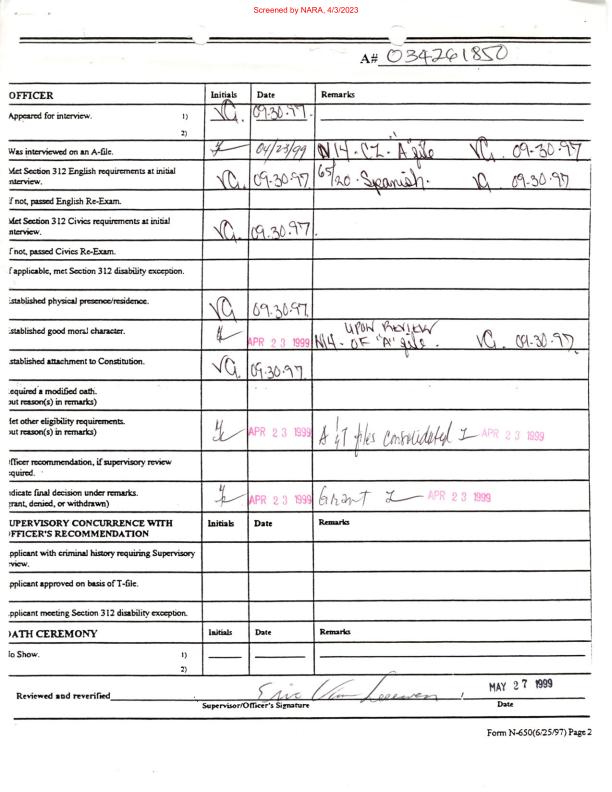 Screened by NARA, 4/3/2023
A# 034261850
OFFICER Initials Date Remarks
Appeared for interview. 1) VG. 09.30.97.
2)
Was interviewed on an A-file. 04/23/99 N14 - CZ - "A" file VG. 09-30-97
Met Section 312 English requirements at initial
nterview. VG. 09.30.97 65/20 - Spanish. VG 09-30-97
f not, passed English Re-Exam.
Met Section 312 Civics requirements at initial
nterview. VG. 09.30.97.
f not, passed Civics Re-Exam.
f applicable, met Section 312 disability exception.
stablished physical presence/residence. VG 09.30.97.
stablished good moral character. APR 23 1999 N14 - UPON REVIEW
OF "A" file. VG. 09-30-97
stablished attachment to Constitution. VG. 09.30.97.
equired a modified oath.
out reason(s) in remarks)
let other eligibility requirements.
out reason(s) in remarks) APR 23 1999 A & T files consolidated APR 23 1999
fficer recommendation, if supervisory review
equired.
ndicate final decision under remarks.
grant, denied, or withdrawn) APR 23 1999 Grant APR 23 1999
UPERVISORY CONCURRENCE WITH Initials Date Remarks
FFICER'S RECOMMENDATION
pplicant with criminal history requiring Supervisory
view.
pplicant approved on basis of T-file.
pplicant meeting Section 312 disability exception.
OATH CEREMONY Initials Date Remarks
lo Show. 1)
2)
Reviewed and reverified Eric Van Leeuwen MAY 27 1999
Supervisor/Officer's Signature Date
Form N-650(6/25/97) Page 2